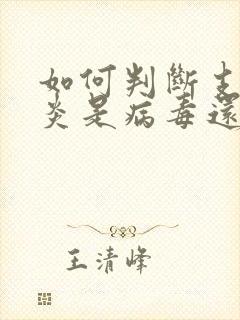 如何判斷支
炎是病毒還
王清峰